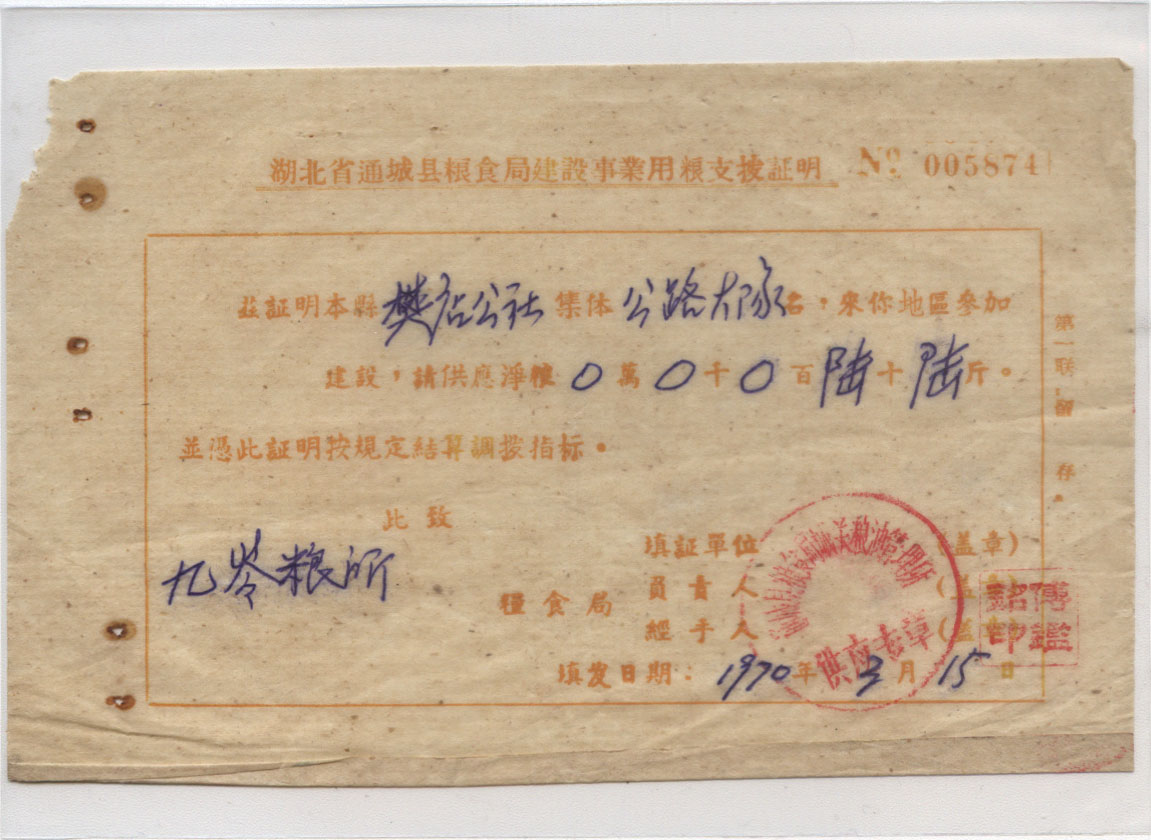 湖北省通城县粮食局建設事業用粮支拨証明 № 005874
茲証明本縣樊店公社集体公路大隊名，來你地區參加
建設，請供應淨糧0萬0千0百陆十陆斤。
並憑此証明按規定結算調拨指标。
此致
九岺粮所
糧食局
填証單位 (盖章)
員責人 (盖章)
經手人 (盖章)
填发日期：1970年3月15日
第一联，留存。
供应专章
傅鑑印